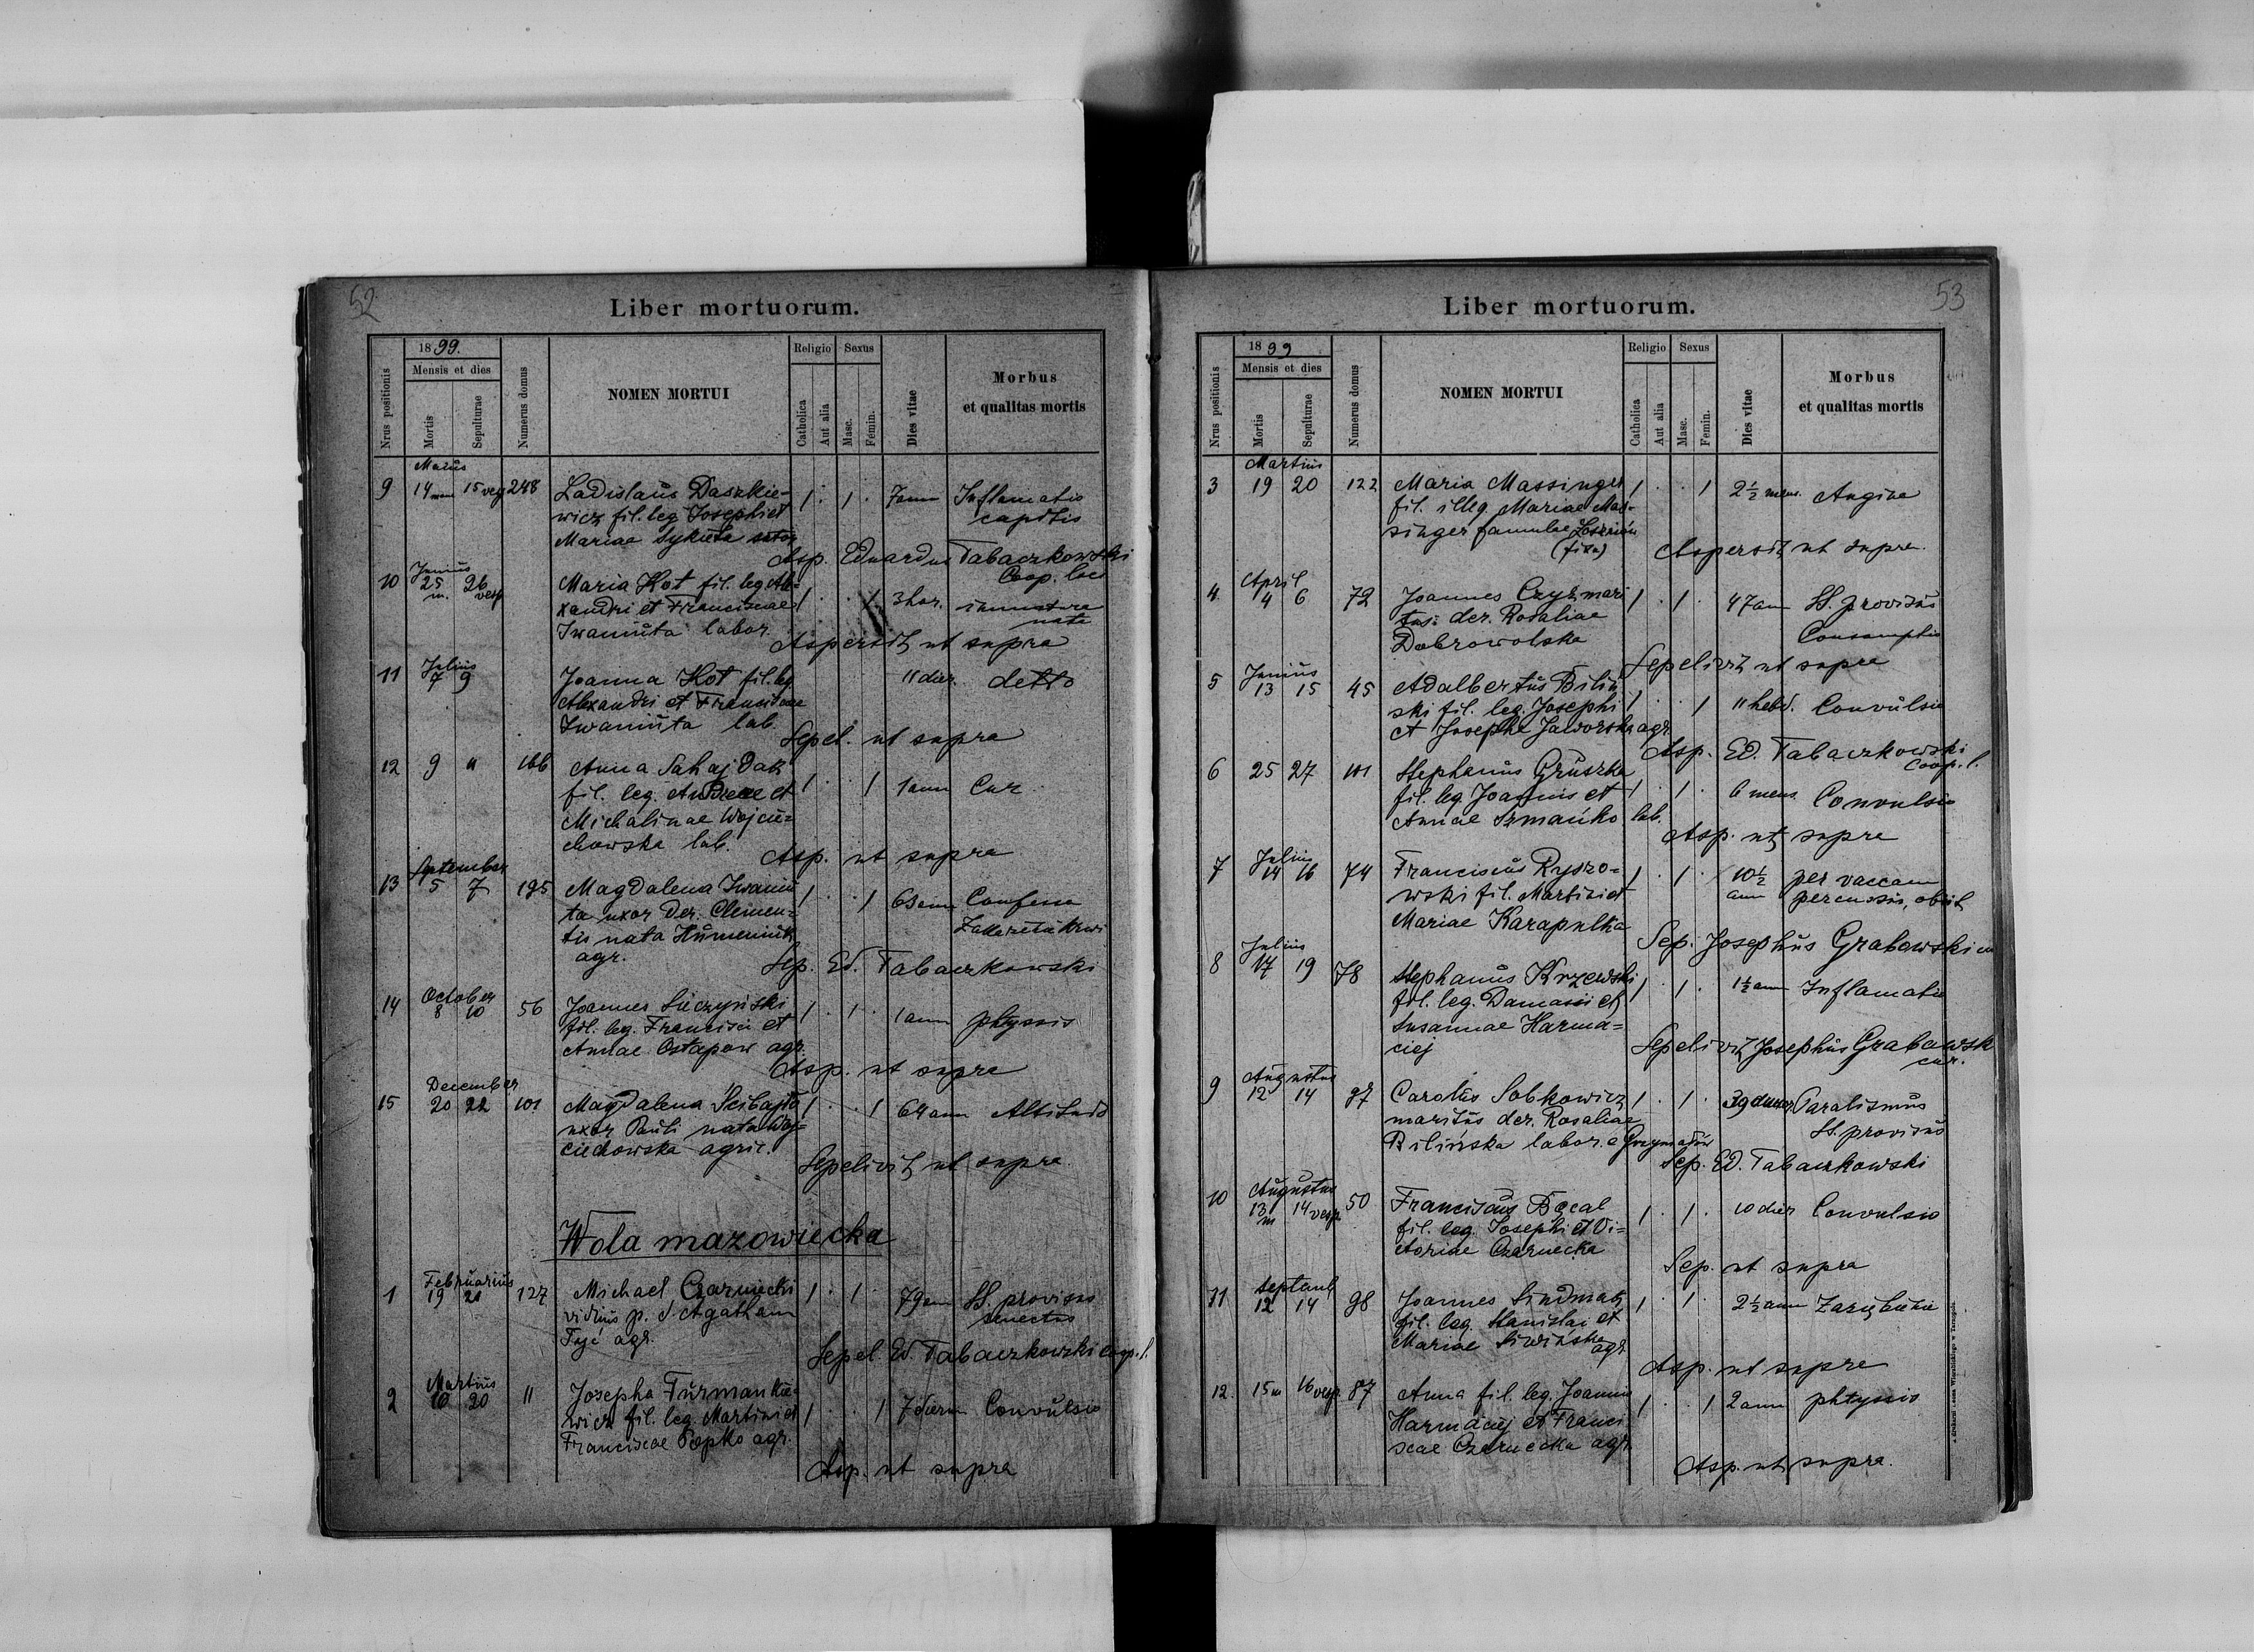 52
Liber mortuorum.
1899.
Mensis et dies
Nrus positionis
Mortis
Sepulturae
Numerus domus
NOMEN MORTUI
Religio
Sexus
Catholica
Aut alia
Masc.
Femin.
Dies vitae
Morbus
et qualitas mortis
Maius
9 14 15 vesp 248 Ladislaus Daszkie- 1 . 1 . 7 ann Inflamatio
wicz fil. leg Josephi et capitis
Mariae Sykuta
Asp. Eduardus Tabaczkowski
Coop. loci
Junius
10 25 26 Maria Hot fil. leg Ale- 1 . . 1 3 hor. immature
m. vesp xandri et Franciscae nata
Iwaniuta labor.
Aspersit ut supra
Julius
11 7 9 Joanna Hot fil. leg 11 dier. detto
Alexandri et Franciscae
Iwaniuta lab.
Sepel. ut supra
12 9 " 166 Anna Sahajdak 1 . . 1 1 ann
fil. leg. Andreae et
Michalinae Wojcie=
chowska lab.
Asp. ut supra
September
13 5 7 195 Magdalena Iwaniu 1 . . 1 63 ann
ta uxor der. Clemen=
tis nata Humeniuk
agr.
Sep. Ed. Tabaczkowski
October
14 8 10 56 Joannes Sieczyński 1 . 1 . 1 ann phtysis
fil. leg. Francisci et
Annae Ostapow agr.
Asp. ut supra
December
15 20 22 101 Magdalena Scibajło 1 . . 1 64 ann
uxor Pauli nata Woj=
ciechowska agric.
Sepelivit ut supra
Wola mazowiecka
Februarius
1 19 21 127 Michael Czarnecki 1 . 1 . 79 ann SS. provisus
viduus p. d. Agatham senectus
agr.
Sepel. Ed. Tabaczkowski coop. l.
Martius
2 20 11 Josepha Furmankie- 1 . . 1 7 dierum Convulsio
wicz fil. leg. Martini et
Franciscae Popko agr.
Asp. ut supra
53
Liber mortuorum.
1899
Mensis et dies
Nrus positionis
Mortis
Sepulturae
Numerus domus
NOMEN MORTUI
Religio
Sexus
Catholica
Aut alia
Masc.
Femin.
Dies vitae
Morbus
et qualitas mortis
Martius
3 19 20 122 Maria Massinger 1 . . 1 2½ mens. Angina
fil. illeg. Mariae Mas-
singer famulae
Aspersit ut supra
April
4 4 6 72 Joannes Czyż mari 1 . 1 . 47 ann SS. provisus
tus der. Rosaliae Consumptio
Dobrowolska
Sepelivit ut supra
Junius
5 13 15 45 Adalbertus Biliń 1 . . 1 11 hebd. Convulsio
ski fil. leg. Josephi
et Josephae Jaworska agr.
Asp. Ed. Tabaczkowski
coop. l.
6 25 27 101 Stephanus Gruszka 1 . 1 . 6 mens Convulsio
fil. leg. Joannis et
Annae Szmańko lab.
Asp. ut supra
Julius
7 14 16 74 Franciscus Ryszo= 1 . 1 . 10½ per vaccam
wski fil. Martini et ann percussus, obiit
Mariae Karapulka
Sep. Josephus Grabowski
Julius
8 17 19 78 Stephanus Krzewski 1 . 1 . 1½ ann Inflamatio
fil. leg. Damasi et
Susannae Harma=
ciej
Sepelivit Josephus Grabowski
cur.
Augustus
9 12 14 97 Carolus Sobkowicz 1 . 1 . 39 Paralismus
maritus der. Rosaliae SS. provisus
Bilińska labor.
Sep. Ed. Tabaczkowski
Augustus
10 13 14 vesp 50 Franciscus Bącal 1 . 1 . 10 dier Convulsio
m fil. leg. Josephi et Vi=
ctoriae Czarnecka
Sep. ut supra
Septemb
11 12 14 98 Joannes Sindmak 1 . 1 . 2½ ann Zaziębienie
fil. leg. Stanislai et
Mariae agr.
Asp. ut supra
12. 15 m 16 vesp. 87 Anna fil. leg. Joannis 1 . . 1 2 ann phtysis
Harmaciej et Franci
scae Czarnecka agr.
Asp. ut supra.